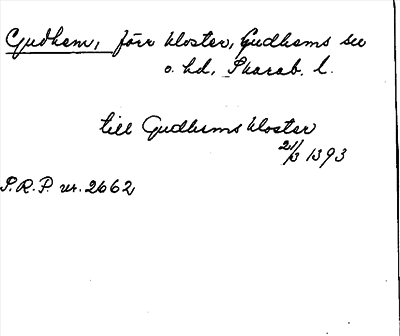 Gudhem, förr kloster, Gudhems sn
o. hd, Skarab. l.
till Gudhems kloster
21/3 1393
S.R.P. nr. 2662